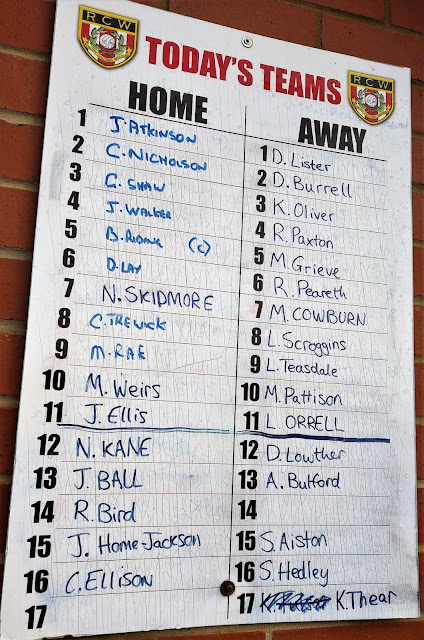 RCW
TODAY'S TEAMS
RCW
HOME
1 J. ATKINSON
2 C. NICHOLSON
3 C. SHAW
4 J. WALKER
5 B. RIDING (c)
6 D. LAY
7 N. SKIDMORE
8 C. TREWICK
9 M. RAE
10 M. Weirs
11 J. Ellis
12 N. KANE
13 J. BALL
14 R. Bird
15 J. Home-Jackson
16 C. Ellison
17
AWAY
1 D. Lister
2 D. Burrell
3 K. Oliver
4 R. Paxton
5 M. Grieve
6 R. Peareth
7 M. COWBURN
8 L. Scroggins
9 L. Teasdale
10 M. Pattison
11 L. ORRELL
12 D. Lowther
13 A. Burford
14
15 S. Aiston
16 S. Hedley
17 K. Thear